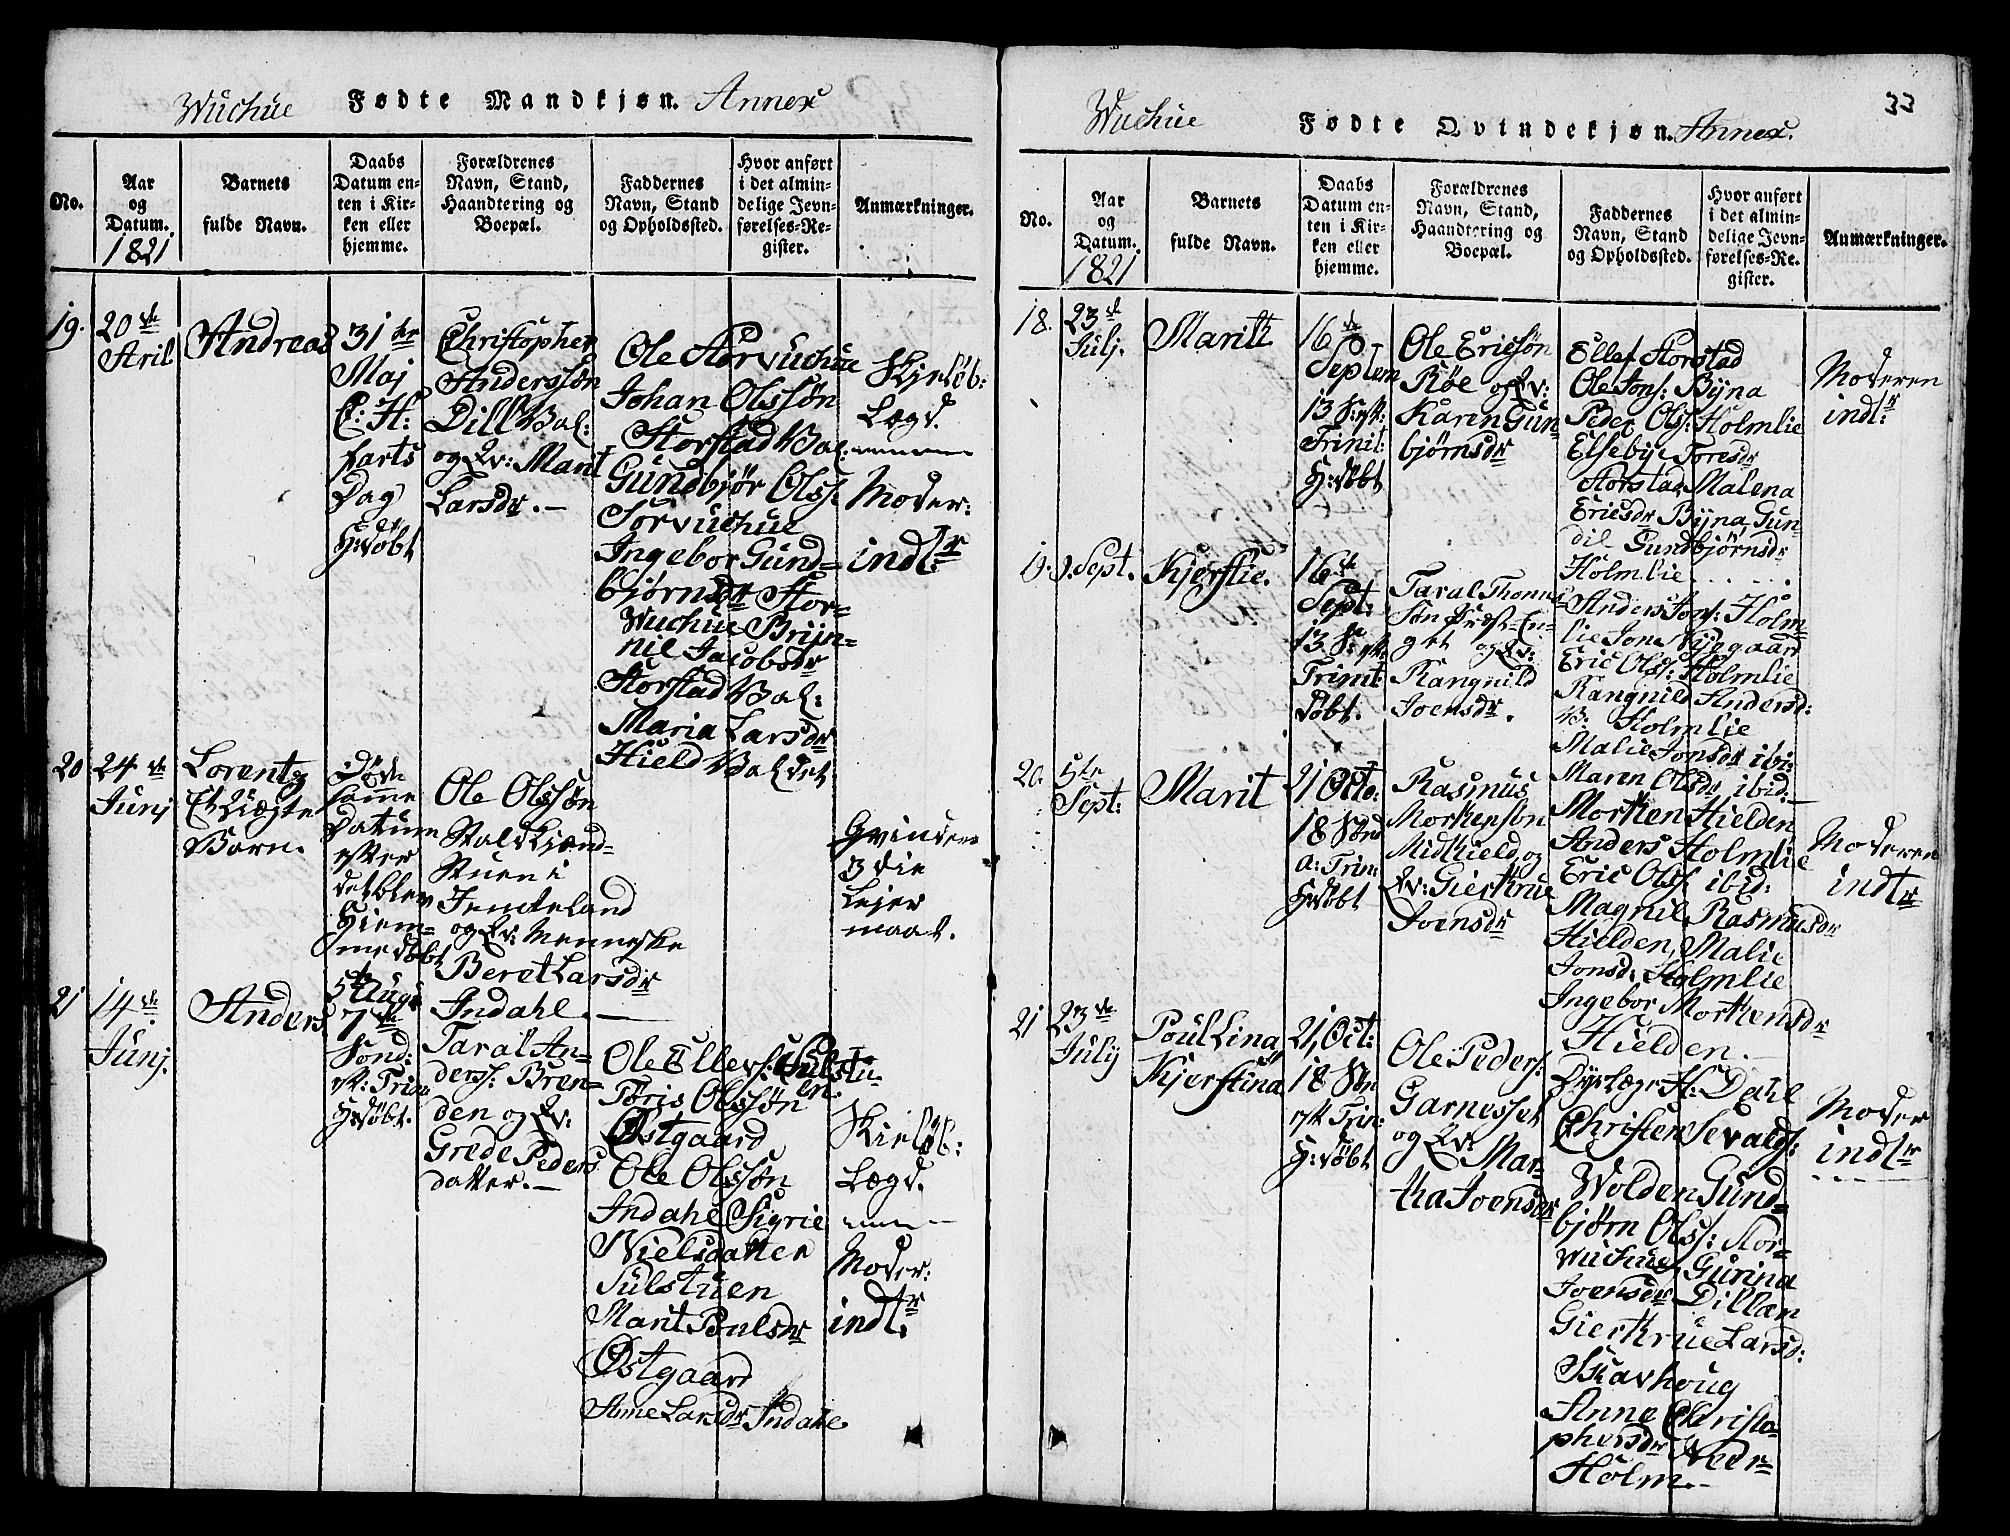 Wuchue Fødte Mandkjøn. Annex
No.
Aar
og
Datum.
1821
Barnets
fulde Navn.
Daabs
Datum en-
ten i Kir-
ken eller
hjemme.
Forældrenes
Navn, Stand,
Haandtering og
Boepæl.
Faddernes
Navn, Stand
og Opholdssted.
Hvor anført
i det almin-
delige Jevn-
førelses-Re-
gister.
Anmærkninger.
19.
20de
Aril
Andreas
31te
Maj
C: H:
farts
Dag
er
H:døbt
Christopher
Anderssøn
Dill Val:
og Qv: Marit
Larsdr. —
Ole Storvuchue
Johan Olssøn
Storstad Val:
Gundbjør Olss:
Storvuchue
Ingebor Gund=
bjørnsdr Stor=
Wuchue Bryn=
nil Jacobsdr
Storstad Val:
Maria Larsdr
Hield Val det
Kjeløb:
Lægd.
Moder:
indlr
20
24de
Junj
Lorentz
Et Uægte
Barn.
Døde
samme
Datum
efter
det blev
Hiem=
me døbt
Ole Olssøn
Staldkjænd
Stuen i
Jemteland
og Qv: Menneske
Beret Larsdr
Indahl. —
Qvindens
3die
Lejer
maal.
21
14de
Junj.
Anders
5te Aug:
7de
Sond:
eft: Trin:
H:døbt.
Taral An=
derss: Bren=
den og Qv:
Grede Peders
datter. —
Ole Ellevs: Sulstu=
en.
Toris Olssøn
Østgaard
Ole Olssøn
Indahl Sigrie
Nielsdatter
Sulstuen
Marit Poulsdr
Østgaard
Anne Larsdr Indahl
Kieløb:
Lægd.
Moder:
indlr
33
Wuchue Fødte Qvindekjøn. Annex.
No.
Aar
og
Datum.
1821
Barnets
fulde Navn.
Daabs
Datum en-
ten i Kir-
ken eller
hjemme.
Forældrenes
Navn, Stand,
Haandtering og
Boepæl.
Faddernes
Navn, Stand
og Opholdssted.
Hvor anført
i det almin-
delige Jevn-
førelses-Re-
gister.
Anmærkninger.
18.
23de
Julj.
Marith
16de
Septem
13 S: eft:
Trinit:
H:døbt
Ole Ericsøn
Røe og Qv:
Karen Gun=
bjørnsdr
Ellef Storstad
Ole Jons: Byna
Peder Olss: Holmlie
Elsebye Toresdr
Storstad Malena
Ericsdr Byna Gun=
dil Gundbjørnsdr
Holmlie
Moderen
indlr
19.
9. Sept.
Kjerstie.
16de
Sept:
13 S: eft:
Trinit:
døbt.
Taral Thomes
søn Prest-En=
get og Qv:
Rangnild
Joensdr.
Anders Jons: Holm=
lie Jone Nygaard
Eric Olss: Holmlie
Rangnild Andersd:
Holmlie
Malie Jonsdr ibi:
Maren Olsdr ibid:
20.
5te
Sept:
Marit
21 Octo:
18 Sønd
a: Trin:
H:døbt
Rasmus
Morkensøn
Midhield og
Qv: Giertrue
Joensdr
Morken Hielden
Anders Holmlie
Eric Olss: ibid:
Magnil Rasmusdr
Hielden, Malie
Jonsd: Holmlie
Ingebor Morkensdr
Hielden.
Moderen
indlr
21
23de
July
Poul Lina
Kjerstina
21, Oct:
18 Søn
eft Trin:
H:døbt
Ole Peders:
Garnesset
og Qv: Mar=
tha Joensdr
Dyrlæge H: Dahl
Christen Sevalds:
Wolden Gund=
bjørn Olss: Stor=
Wuchue Gurina
Joensdr Dillæn
Giertrue Larsd:
Skavhoug
Anne Christo=
phersdr Neder=
Holm. —
Moder
indlr